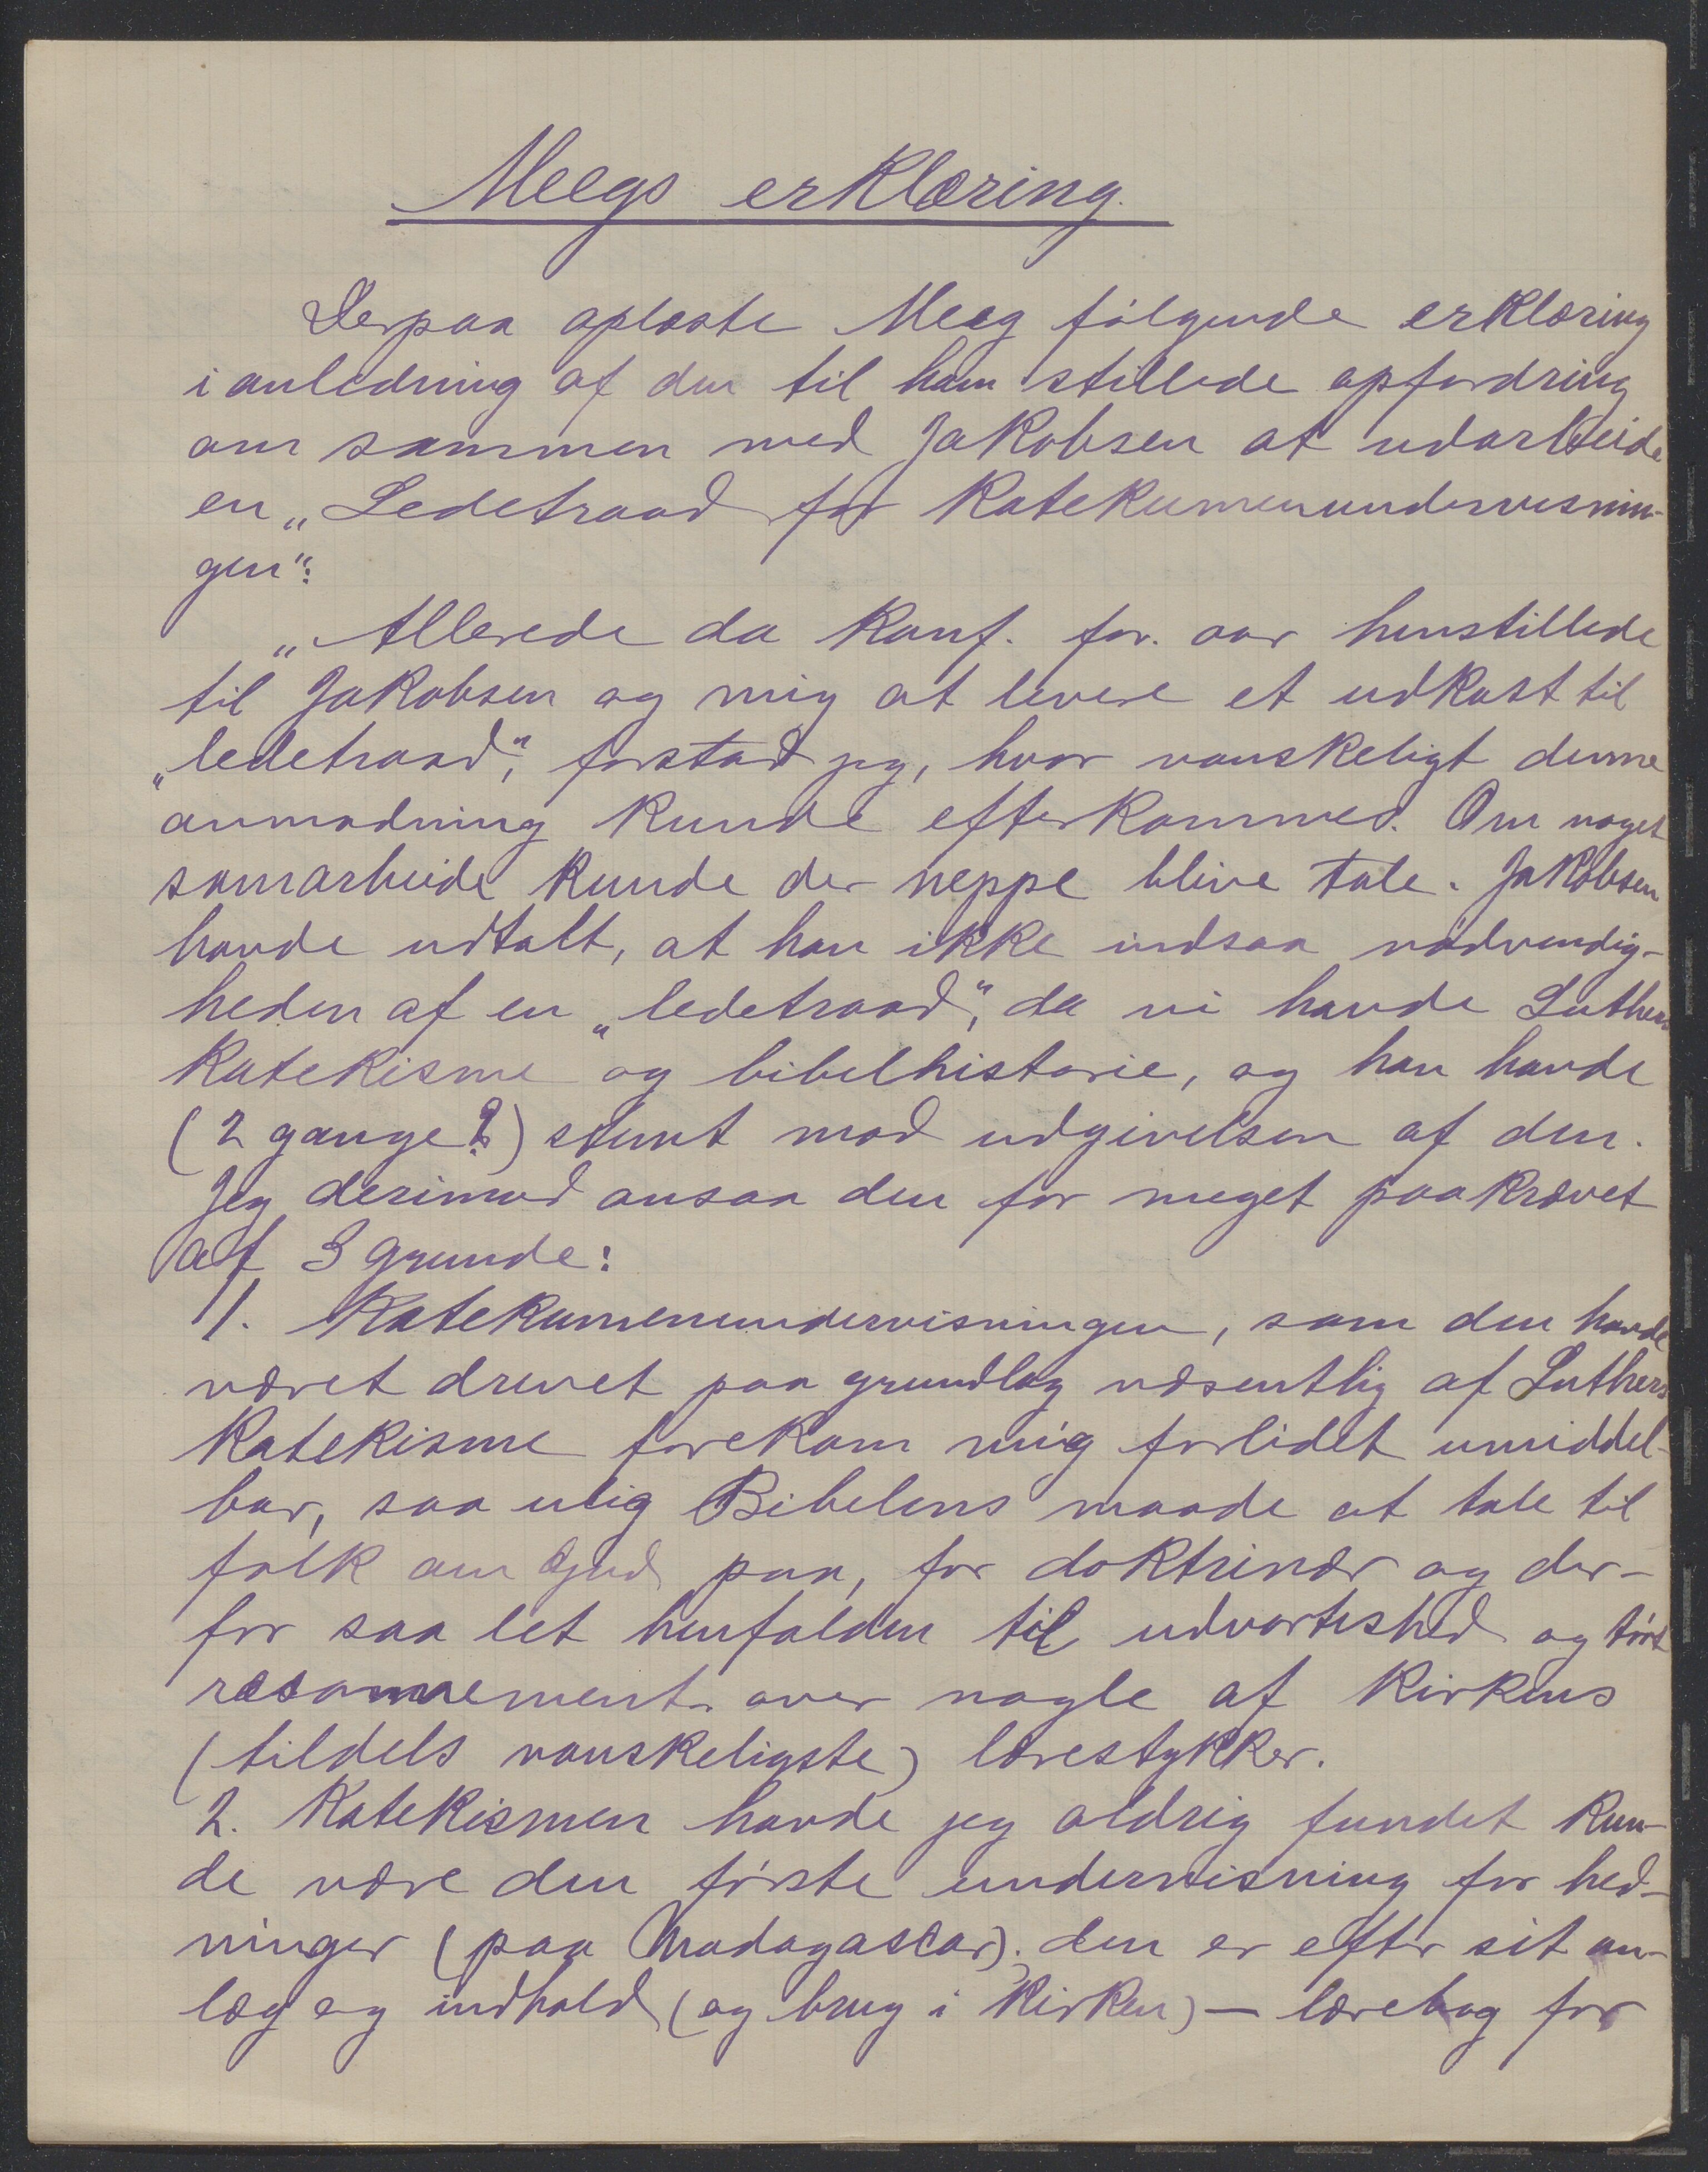 Meegs erklæring.
Derpaa oplæste Meeg følgende erklæring
i anledning af den til ham stillede opfordring
om sammen med Jakobsen at udarbeide
en „Ledetraad for Katekumenundervisnin-
gen“:
„Allerede da Konf. for. aar henstillede
til Jakobsen og mig at levere et udkast til
„ledetraad“, forstod jeg, hvor vanskeligt denne
anmodning kunde efterkommes. Om noget
samarbeide kunde der neppe blive tale. Jakobsen
havde udtalt, at han ikke indsaa nødvendig-
heden af en „ledetraad“, da vi havde Luthers
Katekisme og bibelhistorie, og han havde
(2 gange?) stemt mod udgivelsen af den.
Jeg derimod ansaa den for meget paakrævet
af 3 grunde:
1. Katekumenundervisningen, som den havde
været drevet paa grundlag væsentlig af Luthers
Katekisme forekom mig forlidet umiddel-
bar, saa ulig Bibelens maade at tale til
folk om Gud paa, for doktrinær og der-
for saa let henfalden til udvorteshed og tørt
ræsonnement over nogle af Kirkens
(tildels vanskeligste) lærestykker.
2. Katekismen havde jeg aldrig fundet kun-
de være den første undervisning for hed-
ninger (paa Madagascar); den er efter sit an-
læg og indhold (og brug i Kirken) – lærebog for